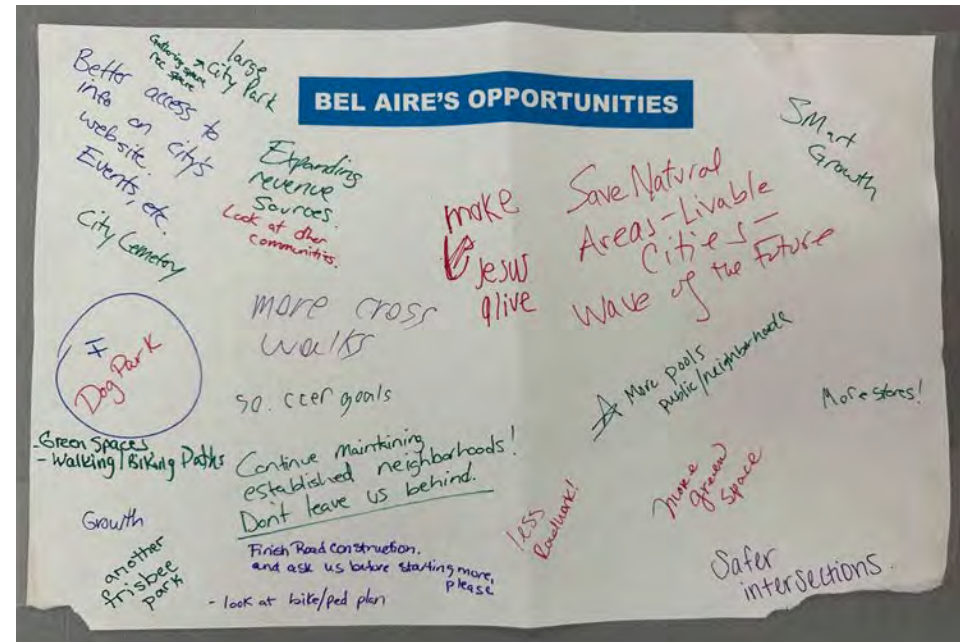 BEL AIRE'S OPPORTUNITIES
Gathering space
rec space
large
City Park
Better access to
info on city's
website.
Events, etc.
City Cemetery
Expanding
revenue
Sources.
Look at other
communities.
make
Jesus
alive
Save Natural
Areas-Livable
Cities-
Wave of the Future
Smart
Growth
more cross
walks
Dog Park
so.ccer goals
More pools
public/neighborhoods
More stores!
-Green Spaces
-Walking/Biking Paths
Continue Maintining
established neighborhoods!
Don't leave us behind.
Growth
another
frisbee
park
Finish Road construction.
and ask us before starting more,
please
- look at bike/ped plan
less
Roadwork!
more
green
space
Safer
intersections.